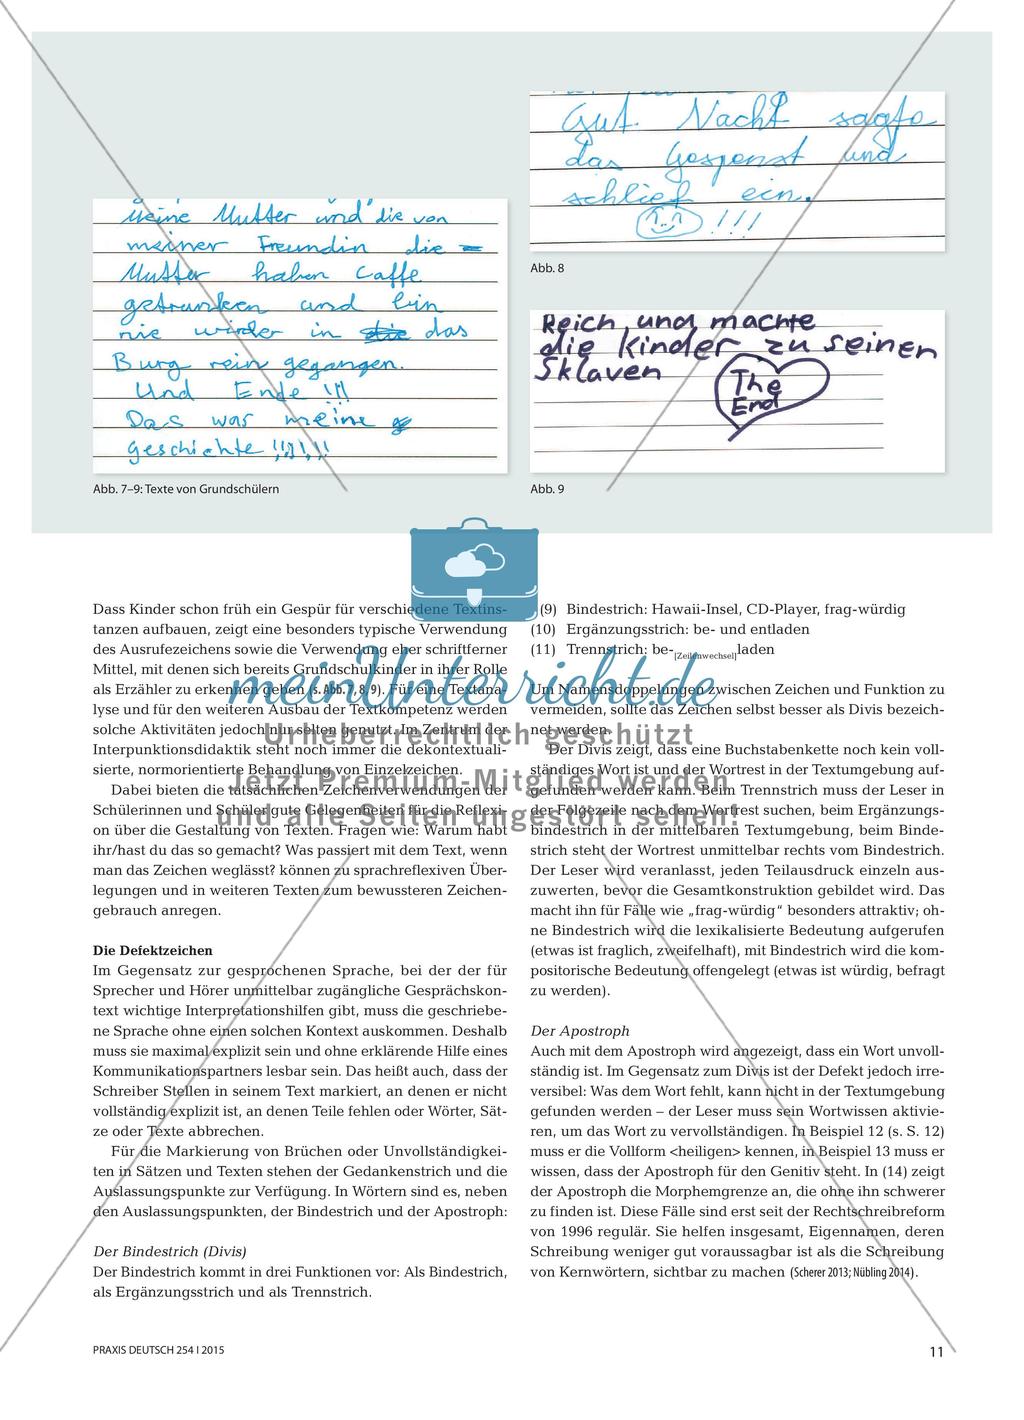 meine Mutter und die von
meiner Freundin die
Mutter haben Caffe
getrunken und bin
nie wieder in die das
Burg rein gegangen.
Und Ende !!!
Das war meine g
geschichte !!!!!!
Abb. 7–9: Texte von Grundschülern
Gut Nacht sagte
das Gespenst und
schlief ein.
!!!
Abb. 8
Reich und machte
die Kinder zu seinen
Sklaven
The
End
Abb. 9
Dass Kinder schon früh ein Gespür für verschiedene Textins-
tanzen aufbauen, zeigt eine besonders typische Verwendung
des Ausrufezeichens sowie die Verwendung eher schriftferner
Mittel, mit denen sich bereits Grundschulkinder in ihrer Rolle
als Erzähler zu erkennen geben (s. Abb. 7, 8, 9). Für eine Textana-
lyse und für den weiteren Ausbau der Textkompetenz werden
solche Aktivitäten jedoch nur selten genutzt. Im Zentrum der
Interpunktionsdidaktik steht noch immer die dekontextuali-
sierte, normorientierte Behandlung von Einzelzeichen.
Dabei bieten die tatsächlichen Zeichenverwendungen der
Schülerinnen und Schüler gute Gelegenheiten für die Reflexi-
on über die Gestaltung von Texten. Fragen wie: Warum habt
ihr/hast du das so gemacht? Was passiert mit dem Text, wenn
man das Zeichen weglässt? können zu sprachreflexiven Über-
legungen und in weiteren Texten zum bewussteren Zeichen-
gebrauch anregen.
Die Defektzeichen
Im Gegensatz zur gesprochenen Sprache, bei der der für
Sprecher und Hörer unmittelbar zugängliche Gesprächskon-
text wichtige Interpretationshilfen gibt, muss die geschriebe-
ne Sprache ohne einen solchen Kontext auskommen. Deshalb
muss sie maximal explizit sein und ohne erklärende Hilfe eines
Kommunikationspartners lesbar sein. Das heißt auch, dass der
Schreiber Stellen in seinem Text markiert, an denen er nicht
vollständig explizit ist, an denen Teile fehlen oder Wörter, Sät-
ze oder Texte abbrechen.
Für die Markierung von Brüchen oder Unvollständigkei-
ten in Sätzen und Texten stehen der Gedankenstrich und die
Auslassungspunkte zur Verfügung. In Wörtern sind es, neben
den Auslassungspunkten, der Bindestrich und der Apostroph:
Der Bindestrich (Divis)
Der Bindestrich kommt in drei Funktionen vor: Als Bindestrich,
als Ergänzungsstrich und als Trennstrich.
(9) Bindestrich: Hawaii-Insel, CD-Player, frag-würdig
(10) Ergänzungsstrich: be- und entladen
(11) Trennstrich: be-[Zeilenwechsel]laden
Um Namensdoppelungen zwischen Zeichen und Funktion zu
vermeiden, sollte das Zeichen selbst besser als Divis bezeich-
net werden.
Der Divis zeigt, dass eine Buchstabenkette noch kein voll-
ständiges Wort ist und der Wortrest in der Textumgebung auf-
gefunden werden kann. Beim Trennstrich muss der Leser in
der Folgezeile nach dem Wortrest suchen, beim Ergänzungs-
bindestrich in der mittelbaren Textumgebung, beim Binde-
strich steht der Wortrest unmittelbar rechts vom Bindestrich.
Der Leser wird veranlasst, jeden Teilausdruck einzeln aus-
zuwerten, bevor die Gesamtkonstruktion gebildet wird. Das
macht ihn für Fälle wie „frag-würdig“ besonders attraktiv; oh-
ne Bindestrich wird die lexikalisierte Bedeutung aufgerufen
(etwas ist fraglich, zweifelhaft), mit Bindestrich wird die kom-
positorische Bedeutung offengelegt (etwas ist würdig, befragt
zu werden).
Der Apostroph
Auch mit dem Apostroph wird angezeigt, dass ein Wort unvoll-
ständig ist. Im Gegensatz zum Divis ist der Defekt jedoch irre-
versibel: Was dem Wort fehlt, kann nicht in der Textumgebung
gefunden werden – der Leser muss sein Wortwissen aktivie-
ren, um das Wort zu vervollständigen. In Beispiel 12 (s. S. 12)
muss er die Vollform <heiligen> kennen, in Beispiel 13 muss er
wissen, dass der Apostroph für den Genitiv steht. In (14) zeigt
der Apostroph die Morphemgrenze an, die ohne ihn schwerer
zu finden ist. Diese Fälle sind erst seit der Rechtschreibreform
von 1996 regulär. Sie helfen insgesamt, Eigennamen, deren
Schreibung weniger gut voraussagbar ist als die Schreibung
von Kernwörtern, sichtbar zu machen (Scherer 2013; Nübling 2014).
meinUnterricht.de
Urheberrechtlich geschützt
Jetzt Premium-Mitglied werden
und alle Seiten ungestört sehen!
PRAXIS DEUTSCH 254 | 2015
11